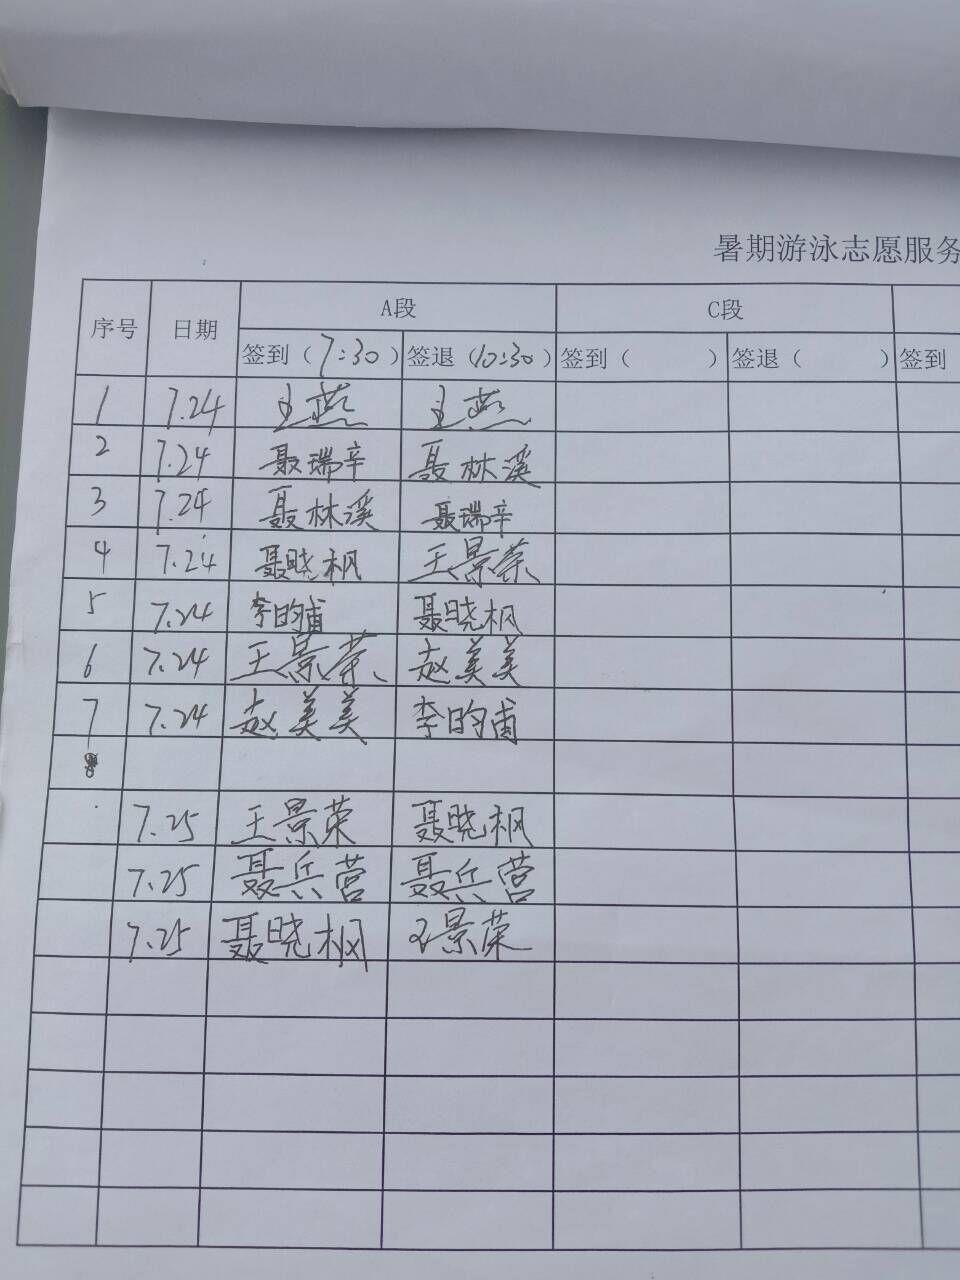 暑期游泳志愿服务
序号 日期 A段 C段
签到（7:30） 签退（10:30） 签到（ ） 签退（ ） 签到
1 7.24 王燕 王燕
2 7.24 聂瑞辛 聂林溪
3 7.24 聂林溪 聂瑞辛
4 7.24 聂晓枫 王景荣
5 7.24 李昀甫 聂晓枫
6 7.24 王景荣 赵美美
7 7.24 赵美美 李昀甫
8
7.25 王景荣 聂晓枫
7.25 聂兵营 聂兵营
7.25 聂晓枫 王景荣